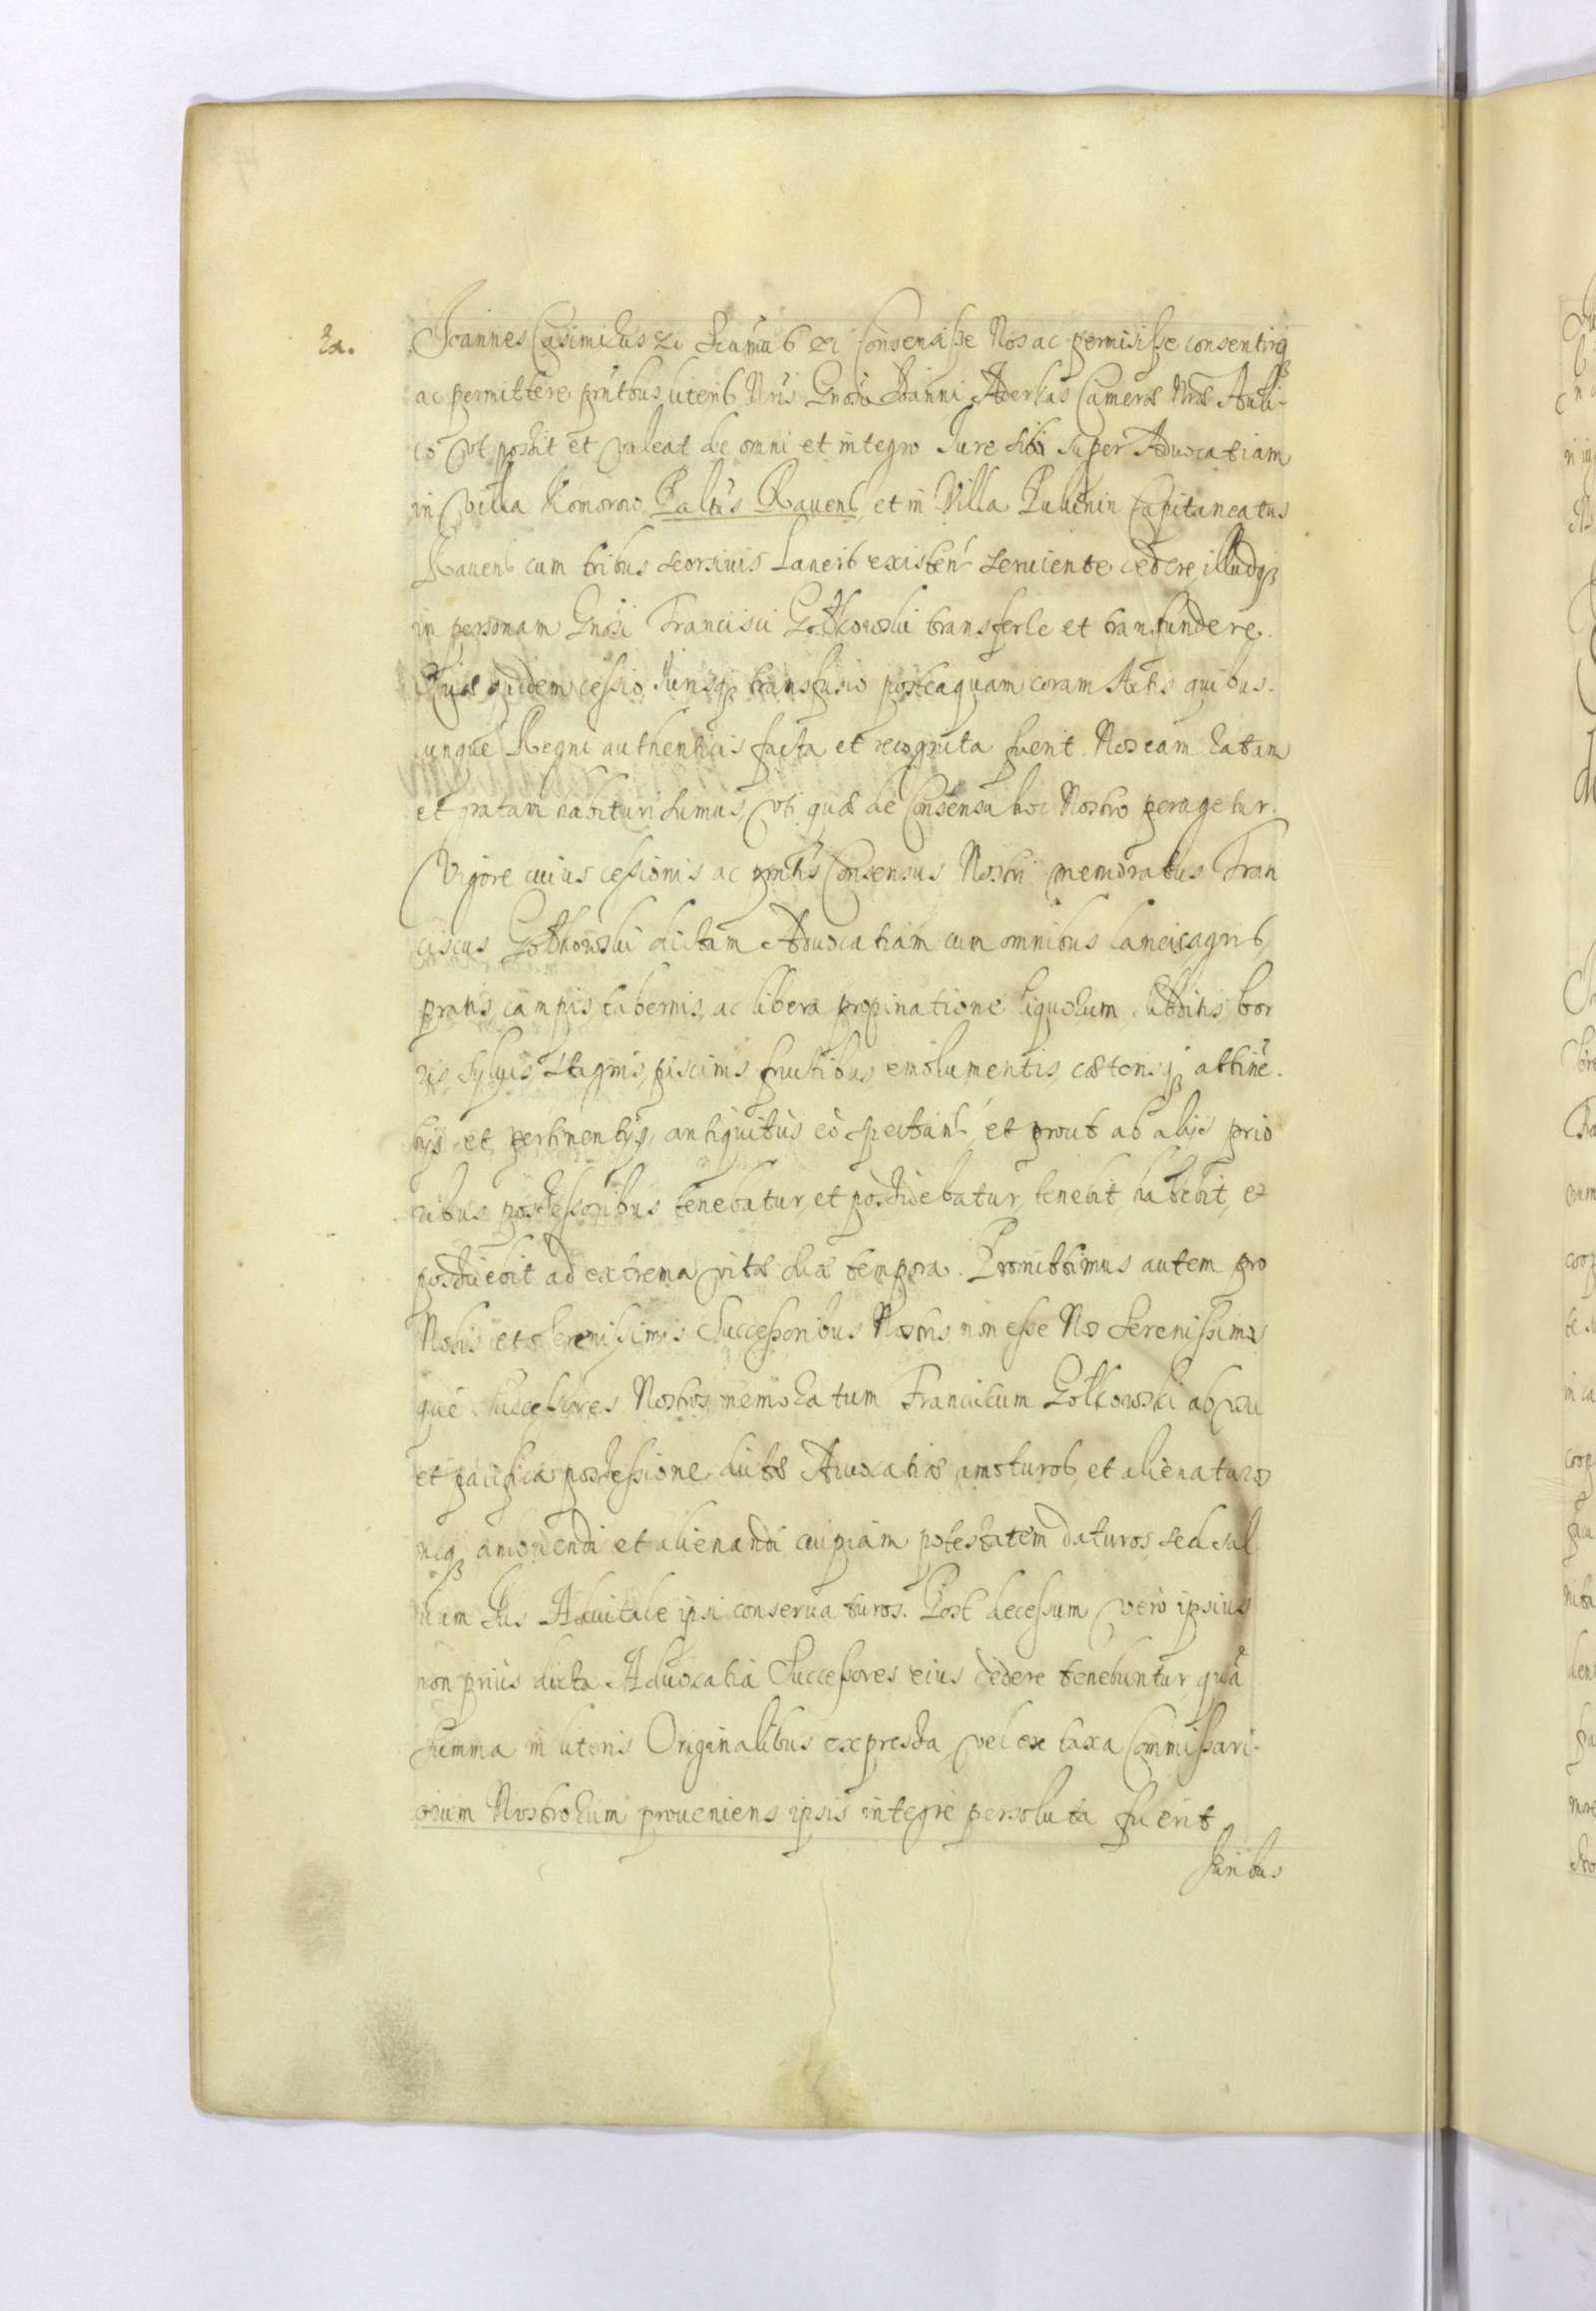 Ra.
Joannes Casimirus &c Significamus &c Consensisse Nos ac permisisse consentireq
ac permittere pntbus literis Nris Gnoso Joanni Aderkas Camerae Nrae Auli-
co Vt possit et valeat de omni et integro Jure sibi super Aduocatiam
in Villa Komorow Paltus Rauens et in Villa Pulienin Capitaneatus
Rauens cum tribus seorsiuis Laneis existen seruiente cedere, illudq
in personam Gnosi Francisci Gołkowski transferre et transfundere.
Quae quidem cessio, Jurisq transfusio posteaquam coram Actis quibus-
cunque Regni authenticis facta et recognita fuerit. Nos eam ratam
et gratam habituri sumus, Vti quae de Consensu hoc Nostro peragetur.
Vigore cuius cessionis ac pntis Consensus Nostri memoratus Fran
ciscus Gołkowski dictam Aduocatiam cum omnibus laneis agris,
pratis, campis, tabernis, ac libera propinatione liquorum, subditis, bor
ris, syluis, stagnis, piscinis, fructibus, emolumentis, caeterisq attine-
tijs et pertinentijs, antiquitùs eò spectan, et prout ab alijs prio
ribus possessoribus tenebatur, et possidebatur, tenebit, habebit, et
possidebit ad extrema vitae suae tempora. Promittimus autem pro
Nobis et Serenissimis Successoribus Nostris non esse Nos Serenissimos
que Successores Nostros memoratum Franciscum Gołkowski ab vsu
et pacifica possessione dictae Aduocatiae amoturos, et alienaturos
neq amouendi et alienandi cuipiam potestatem daturos, sed sal
uum Jus Aduitale ipsi conseruaturos. Post decessum verò ipsius
non priùs dicta Aduocatia Successores eius cedere tenebuntur, quã
summa in literis Originalibus expressa, vel ex taxa Commissari-
orum Nostrorum proueniens ipsis integrè persoluta fuerit
Juribus